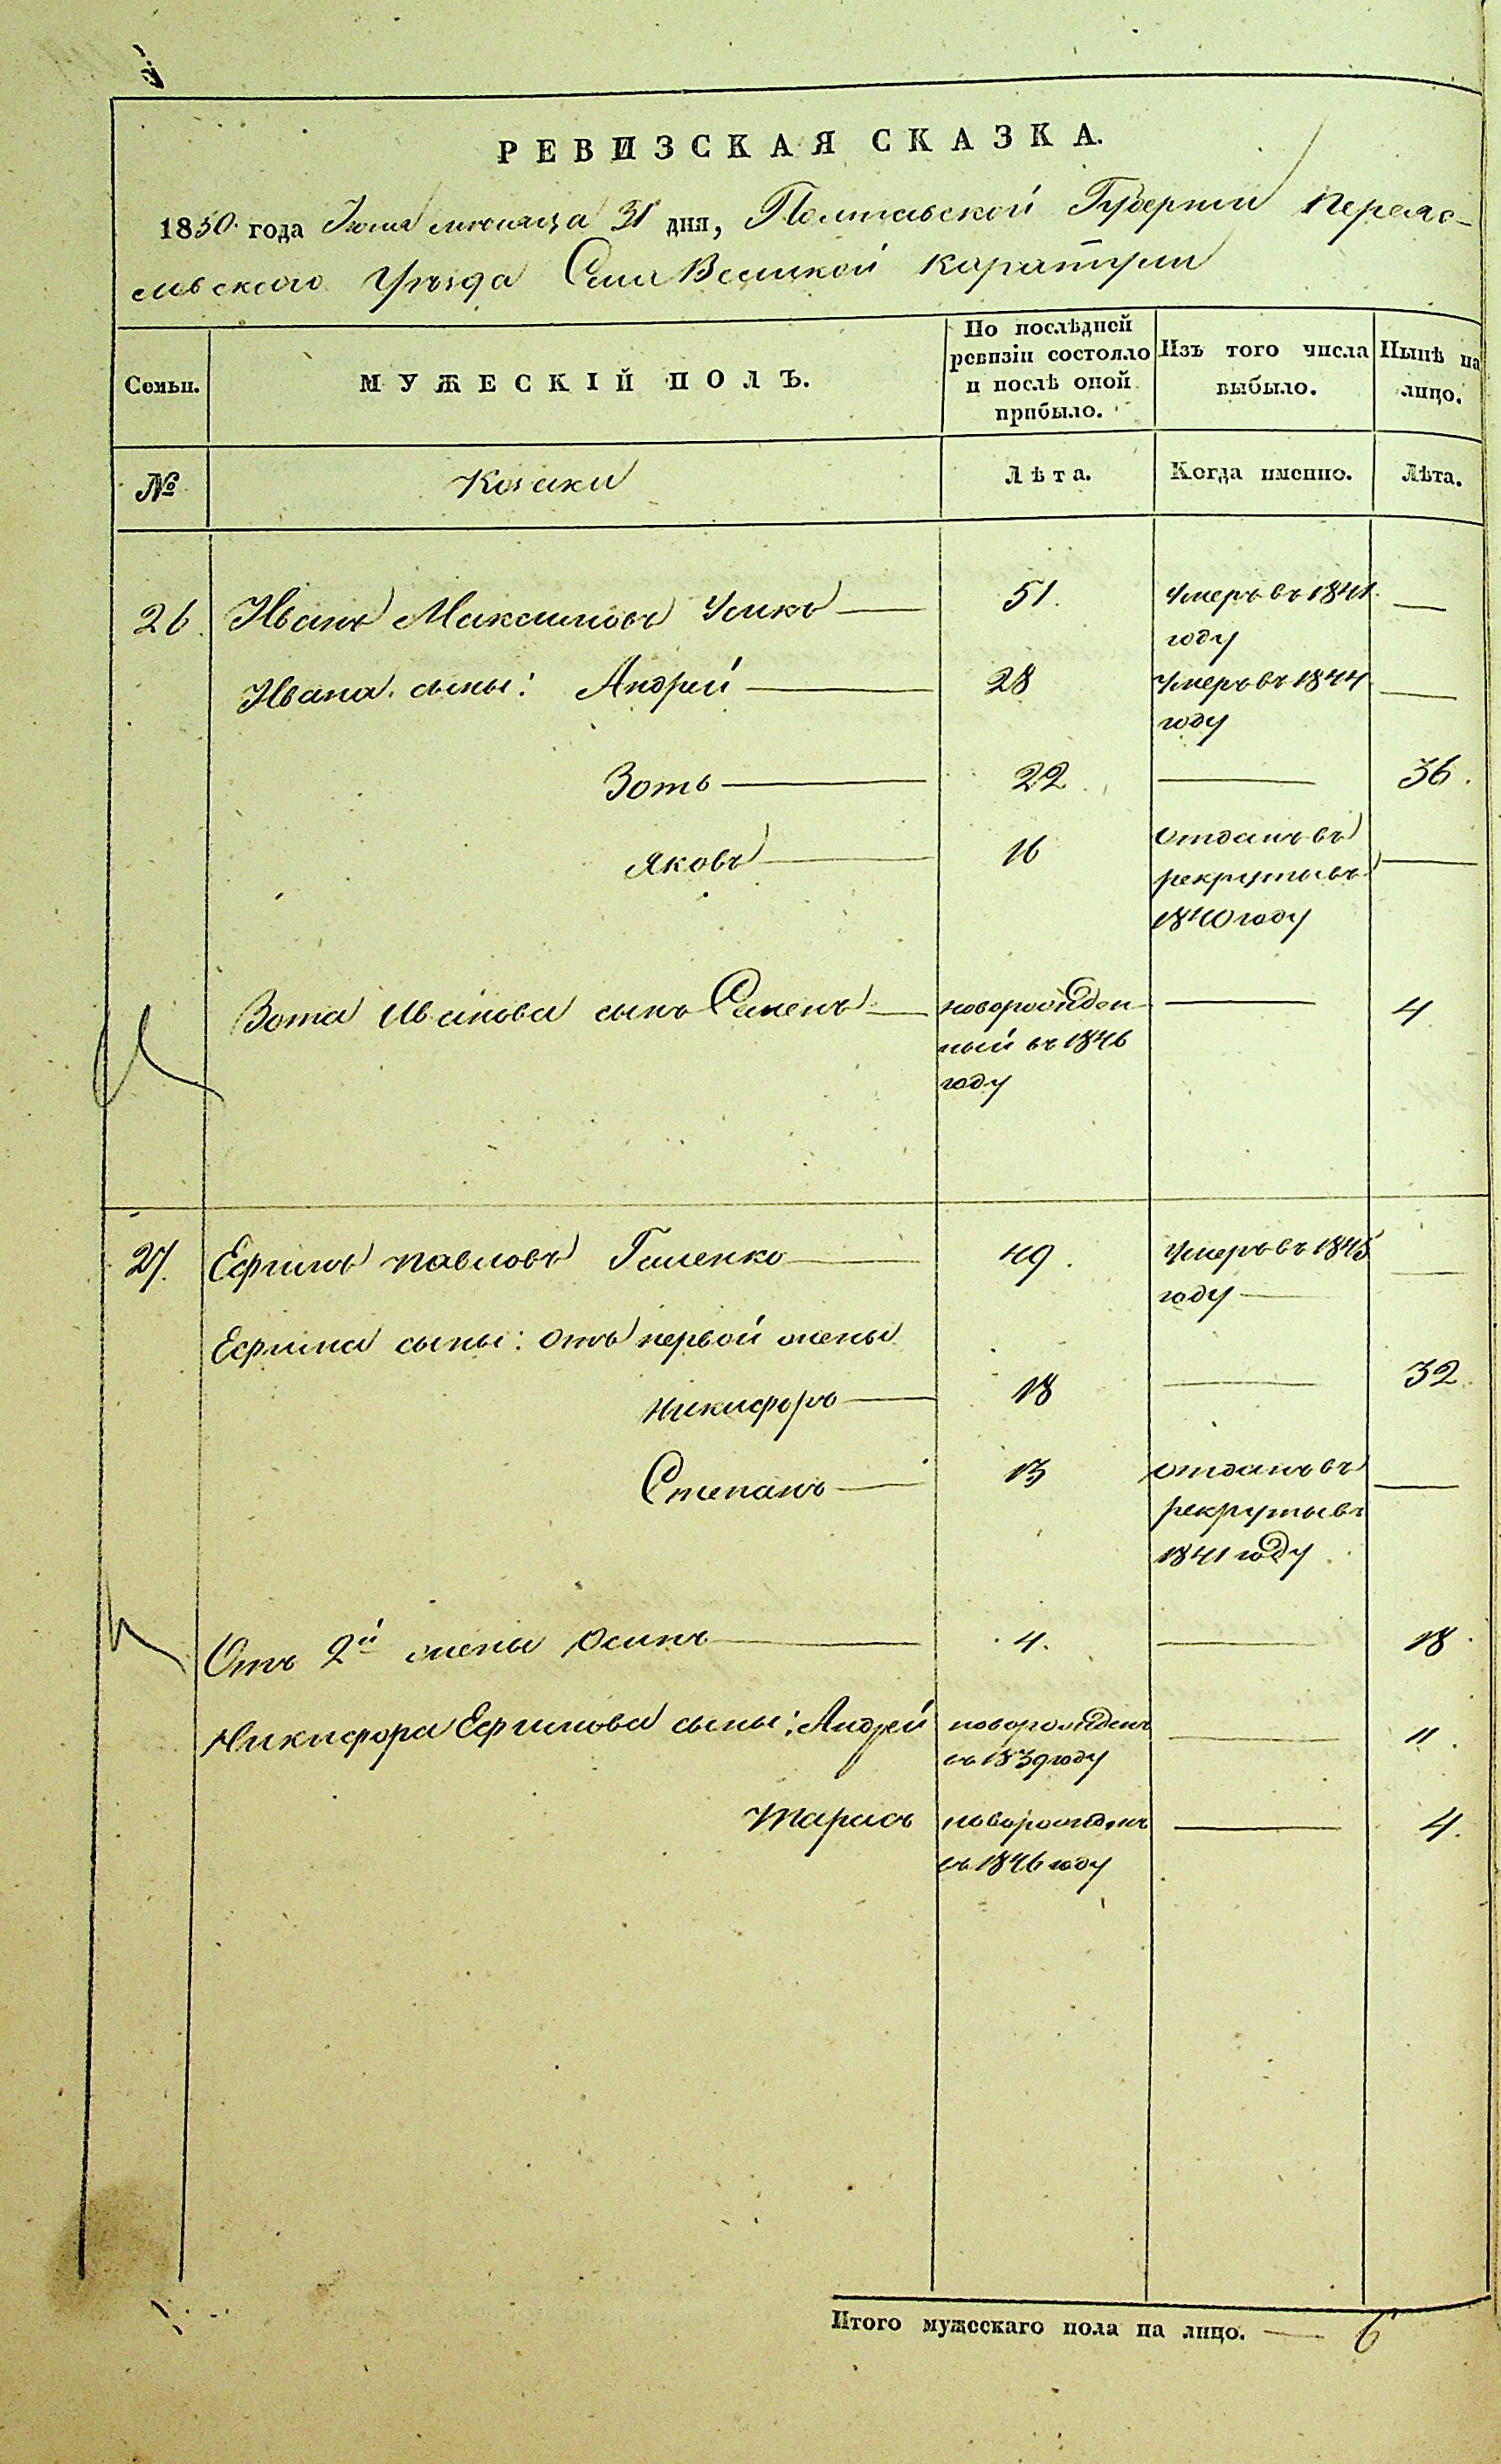 РЕВИЗСКАЯ СКАЗКА.
1850 года Іюля месяца 31 дня, Полтавской Губерніи Переяс-
лавского Уѣзда Села Великой Каратули
Семьи.
МУЖЕСКІЙ ПОЛЪ.
По послѣдней ревизіи состояло и послѣ оной прибыло.
Изъ того числа выбыло.
Нынѣ на лицо.
№
Козаки
Лѣта.
Когда именно.
Лѣта.
26. Иванъ Максимовъ — 51. Умеръ въ 1841 —
году
Ивана сыны: Андрей — 28 Умеръ въ 1844 —
году
Зотъ — 22 — 36.
Яковъ — 16 отданъ въ —
рекруты въ
1840 году
Зота Иванова сынъ Семенъ — новорожден- — 4
ный въ 1846
году
27. Ефимъ Павловъ Галенко — 49. Умеръ въ 1845 —
году —
Ефима сыны: отъ первой жены
Никифоръ — 18 — 32.
Степанъ — 13 отданъ въ —
рекруты въ
1841 году
Отъ 2й жены Осипъ — 4. — 18.
Никифора Ефимова сыны: Андрей новорожденъ — 11.
въ 1839 году
Тарасъ новорожденъ — 4.
въ 1846 году
Итого мужескаго пола на лицо. — 6